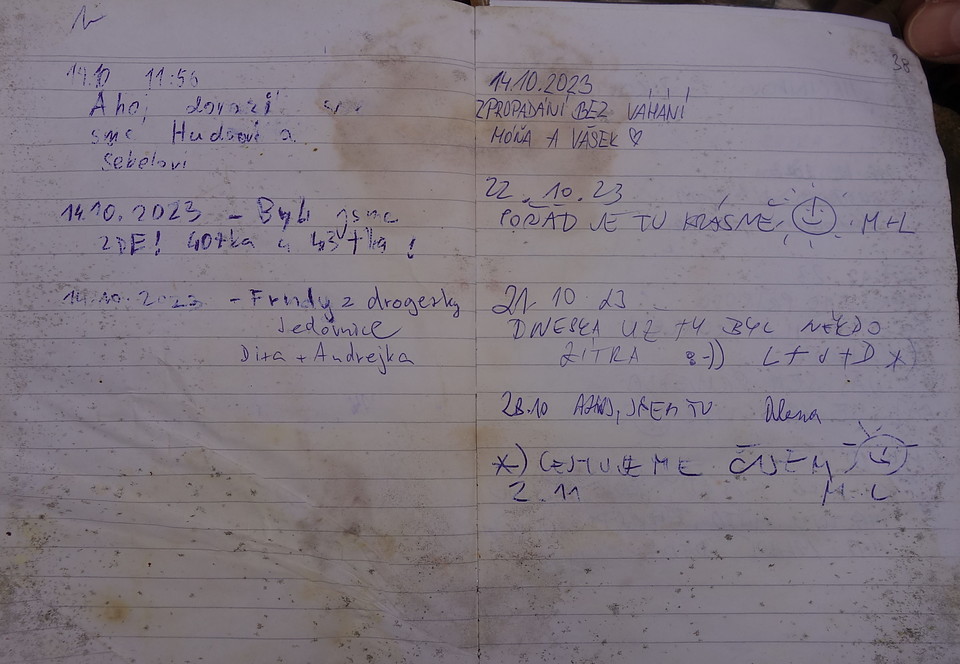 14.10 11:56
Ahoj,
sme Hudcovi a
Sebelovi
14.10.2023 - Byli jsme
ZDE! 40tka a 43tka!
14.10.2023 - Frndy z drogerky
Jedovnice
Dita + Andrejka
38
14.10.2023
ZPROPADÁNÍ BEZ VÁHÁNÍ
MÓŇA A VAŠEK ♡
22.10.23
POŘÁD JE TU KRÁSNĚ M+L
21. 10 23
DNESKA UŽ TU BYL NĚKDO
ZÍTRA 8-)) L+J+D *)
28.10 AHOJ, JSEM TU Alena
*) CESTUJEME ČASEM
2.11 M+L